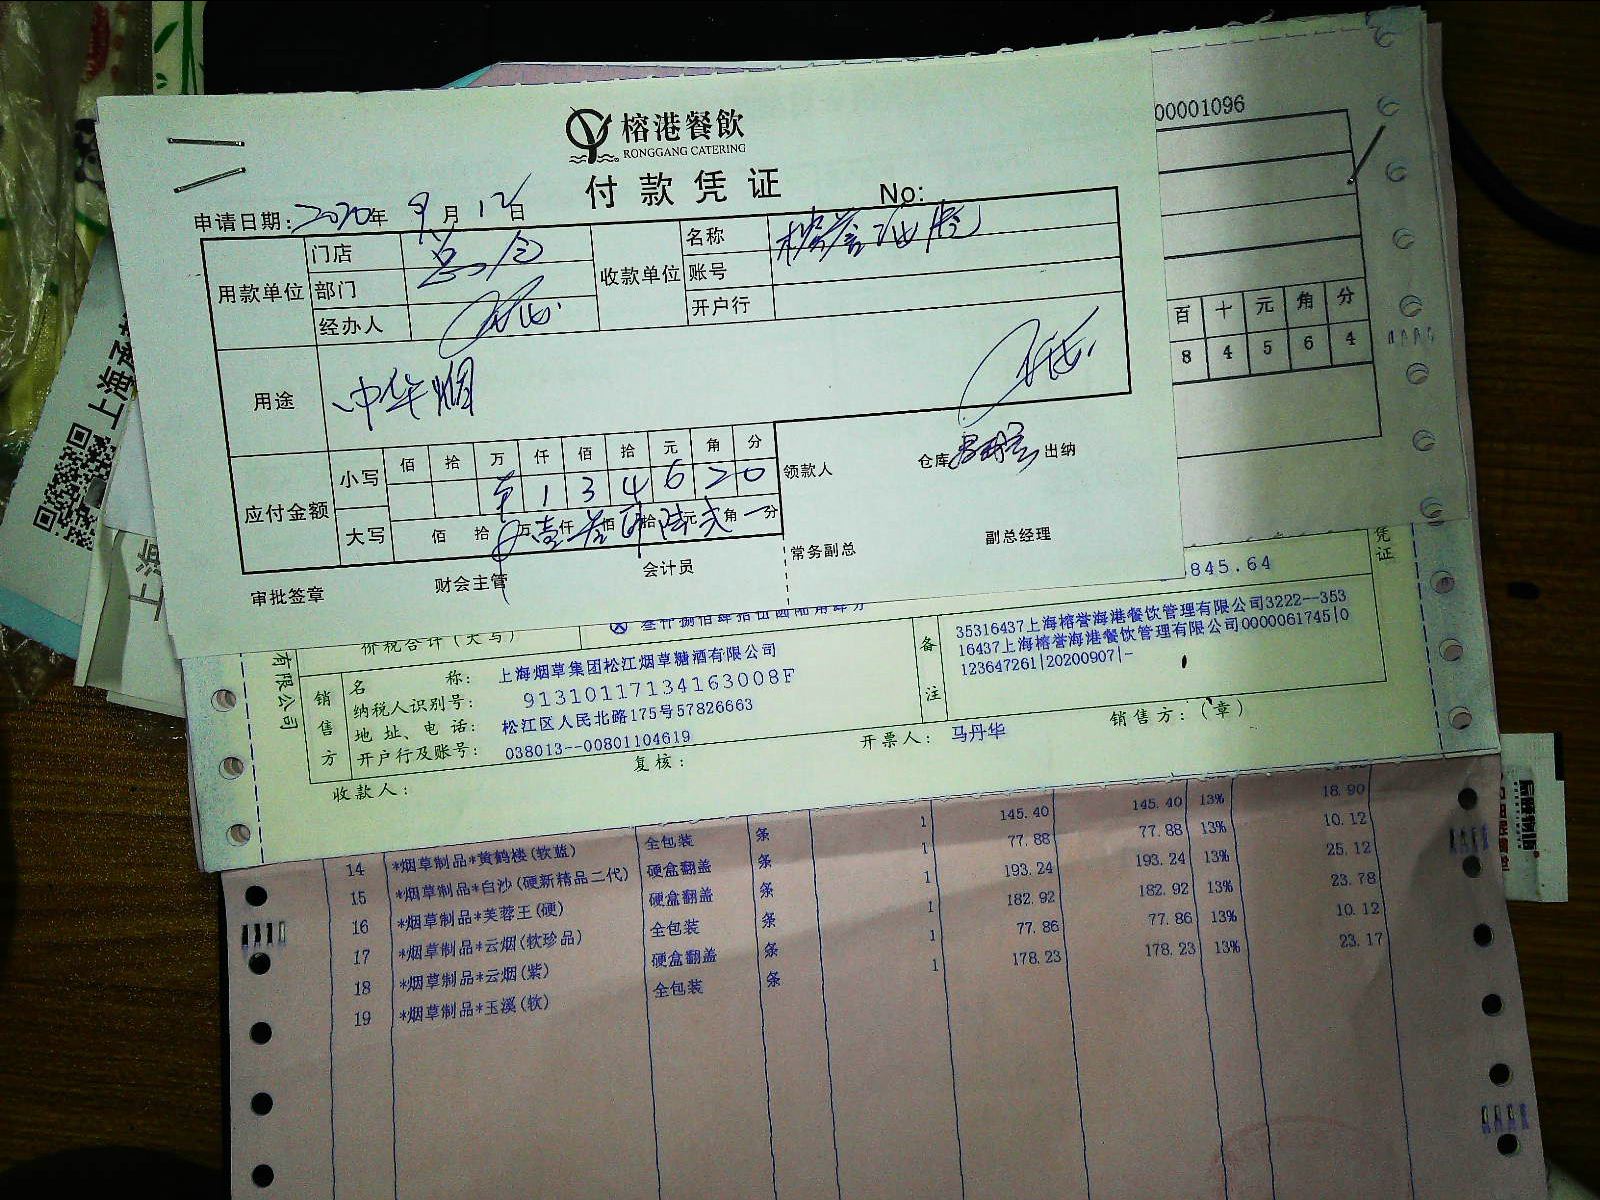 榕港餐飲
RONGGANG CATERING
付款凭证
No:
申请日期: 2020年 9月 12日
用款单位 门店 部门 经办人
收款单位 名称 账号 开户行
用途 中华烟
应付金额
小写 佰 拾 万 仟 佰 拾 元 角 分
1 3 4 6 2 0
大写 佰 拾 万 仟 佰 拾 元 角 分
领款人
仓库
出纳
审批签章
财会主管
会计员
常务副总
副总经理
00001096
百 十 元 角 分
8 4 5 6 4
凭证
845.64
价税合计(大写)
叁仟捌佰肆拾伍圆陆角肆分
有限公司
销售方
名 称: 上海烟草集团松江烟草糖酒有限公司
纳税人识别号: 91310117134163008F
地址、电话: 松江区人民北路175号57826663
开户行及账号: 038013--00801104619
备注
35316437上海榕誉海港餐饮管理有限公司3222--353
16437上海榕誉海港餐饮管理有限公司0000061745|0
123647261|20200907|-
收款人:
复核:
开票人: 马丹华
销售方:(章)
14 *烟草制品*黄鹤楼(软蓝) 全包装 条 1 145.40 145.40 13% 18.90
15 *烟草制品*白沙(硬新精品二代) 硬盒翻盖 条 1 77.88 77.88 13% 10.12
16 *烟草制品*芙蓉王(硬) 硬盒翻盖 条 1 193.24 193.24 13% 25.12
17 *烟草制品*云烟(软珍品) 全包装 条 1 182.92 182.92 13% 23.78
18 *烟草制品*云烟(紫) 硬盒翻盖 条 1 77.86 77.86 13% 10.12
19 *烟草制品*玉溪(软) 全包装 条 1 178.23 178.23 13% 23.17
上海